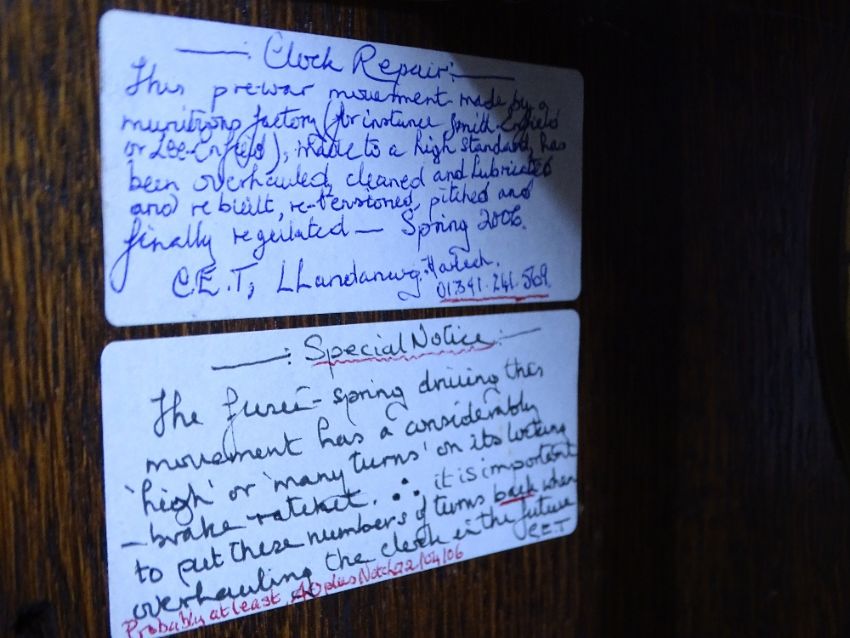 Clock Repair:
This pre-war movement made by a
munitions factory (for instance Smith-Enfield
or Lee-Enfield), made to a high standard, has
been overhauled, cleaned and lubricated
and rebuilt, re-tensioned, pitched and
finally regulated — Spring 2006.
C.E.T, Llandanwg. Harlech.
01341.241.569
: Special Notice :
The fuseé-spring driving this
movement has a considerably
'high' or 'many turns' on its locking
-brake ratchet. ∴ it is important
to put these numbers of turns back when
overhauling the clock in the future
C.E.T
Probably at least 10 plus Notches 22/04/06